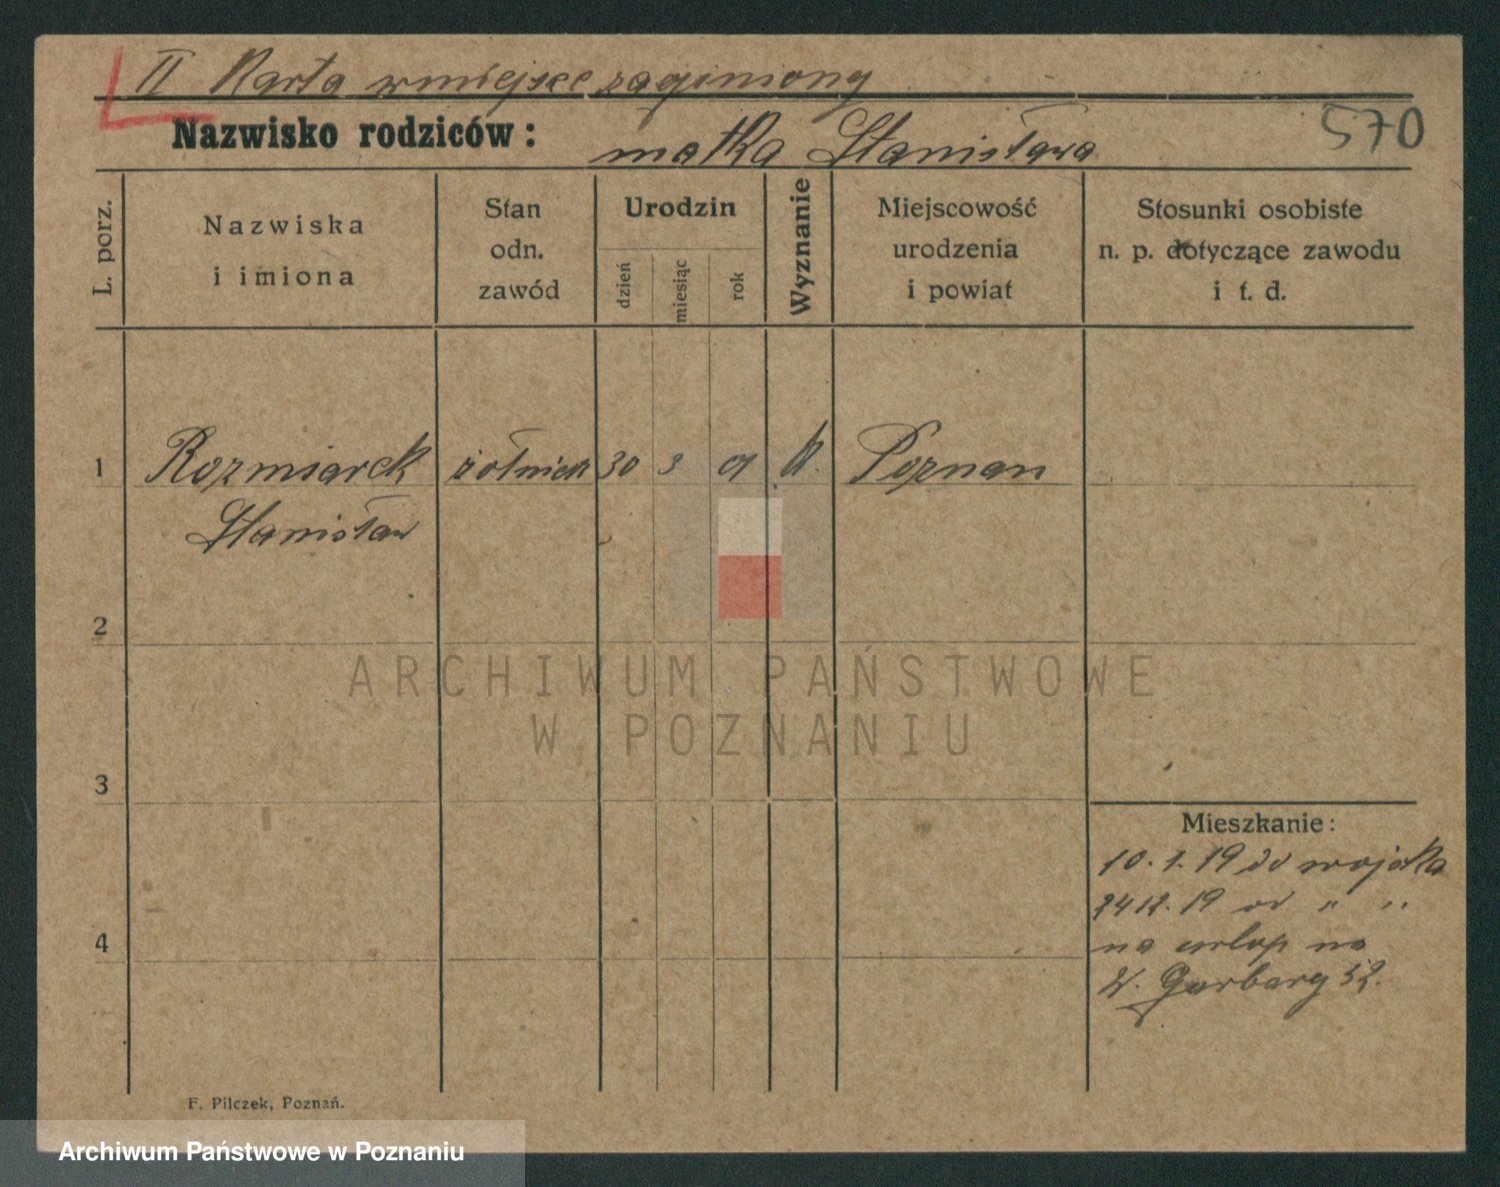 II Karta w miejsce zaginiony
Nazwisko rodziców: matka Stanisława
570
L. porz.
Nazwiska
i imiona
Stan
odn.
zawód
Urodzin
dzień
miesiąc
rok
Wyznanie
Miejscowość
urodzenia
i powiat
Stosunki osobiste
n. p. dotyczące zawodu
i t. d.
1 Rozmiarek żołnierz 30 3 01 k. Poznan
Stanisław
2
ARCHIWUM PAŃSTWOWE
W POZNANIU
3
Mieszkanie:
10. 1. 19 do wojska
24 12. 19 od " "
4
na urlop na
W. Garbary 52.
F. Pilczek, Poznań.
Archiwum Państwowe w Poznaniu